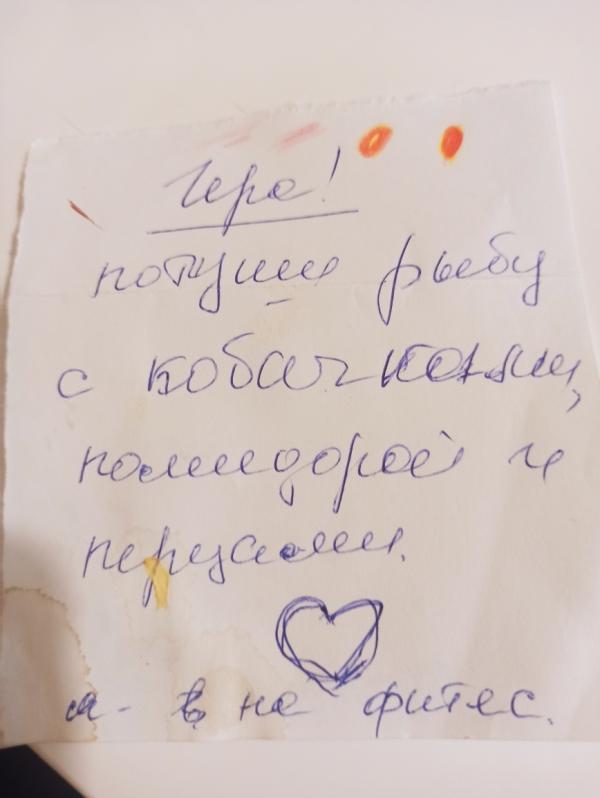 Гера!
потуши рыбу
с кобачками,
помидорой и
перцами.
я - в на фитес.